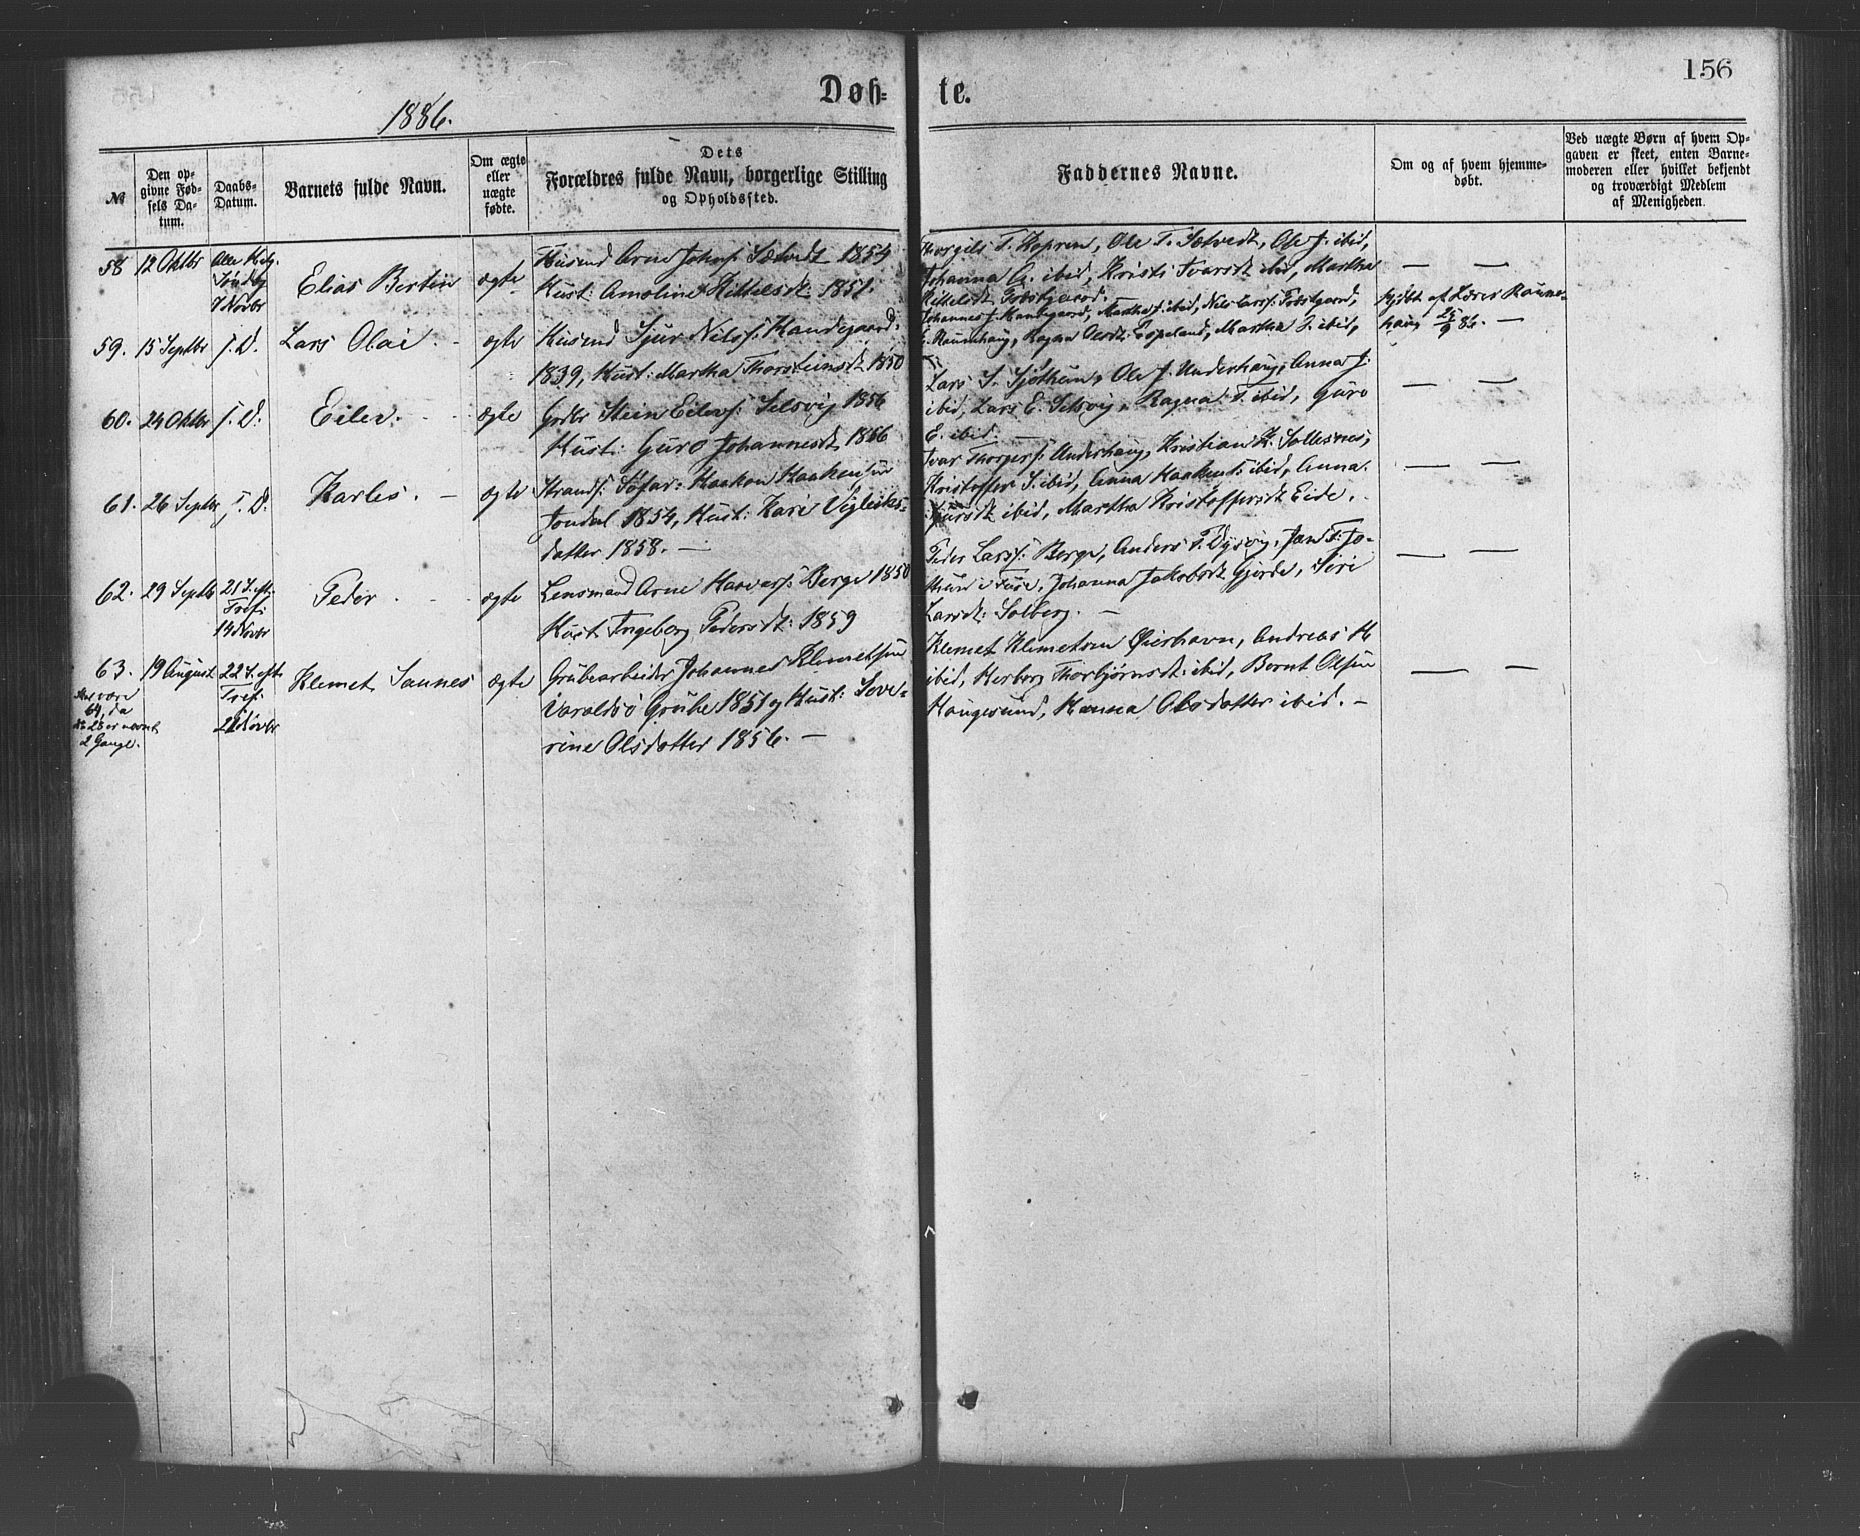 156
Døb- te.
1886.
№
Den opgivne Fødsels Datum.
Daabs-Datum.
Barnets fulde Navn.
Om ægte eller uægte fødte.
Dets
Forældres fulde Navn, borgerlige Stilling
og Opholdssted.
Faddernes Navne.
Om og af hvem hjemmedøbt.
Ved uægte Børn af hvem Opgaven er skeet, enten Barnemoderen eller hvilket bekjendt og troværdigt Medlem af Menigheden.
58 12 Oktbr Alle Helg. Søndag 7 Novbr
Elias Bertin ægte
Husmd Arne Johns: Sætvedt 1854
Hust: Amoline Kittelsdt 1851.
Thorgils T. Kopren, Ole T. Sætvedt, Ole J. ibid,
Johanna A. ibid, Kristi Ivarsdt ibid, Martha
Kittelsdt
59. 15 Septbr s. D. Lars Olai. - ægte
Husmd Sjur Nils: Handegaard
1839, Hust: Martha Thorsteinsdt 1850
Johannes J. Handegaard, Martha J. ibid, Nils Larss:
Ragna Olsdt: Espeland, Martha S. ibid,
hjdbt af Lærer Raunehaug 25/9 86. —
60. 24 Oktbr s. D. Eilev. - - ægte
Gbr Stein Eilevs: Selsvig 1856
Hust: Guro Johannesdt 1866
Lars S. Sjötheim, Ole J. Underhaug, Anna J.
ibid, Lars E. Selsvig, Ragna T. ibid, Guro
E. ibid. —
61. 26 Septbr s. D. Karles. - ægte
Strands: Søfar: Haakon Haakensen
Jondal 1854, Hust: Kari Vigleiks-
datter 1858. —
Ivar Thorgers: Underhaug, Kristian K. Sollesnes,
Kristoffer S. ibid, Anna Haakensdt ibid, Anna
Sjursdt ibid, Martha Kristoffersdt Eide. -
62. 29 Septbr 21 S. eft. Tref: 14 Novbr
Peder. - - ægte
Lensmand Arne Haavars: Berge 1850
Hust. Ingeborg Pedersdt: 1859
Peder Larss: Berge, Anders T. Dysvig, Jan T. Jo-
Johanna Jakobsdt Gjerde, Siri
Larsdt: Solberg. —
63. 19 August 22 S. eft. Tref. 21 Novbr
Skal være
64, da
No 28 er nævnt
2 Gange.
Klemet Sannes ægte
Grubearbeider Johannes Klemetsen
Varaldsö Grube 1851 og Hust: Seve-
rine Olsdatter 1856. —
Klemet Klemetsen Øierhavn, Andreas K.
ibid, Herborg Thorbjørnsdt: ibid, Bernt Olsen
Haugesund, Hanna Olsdatter ibid. -